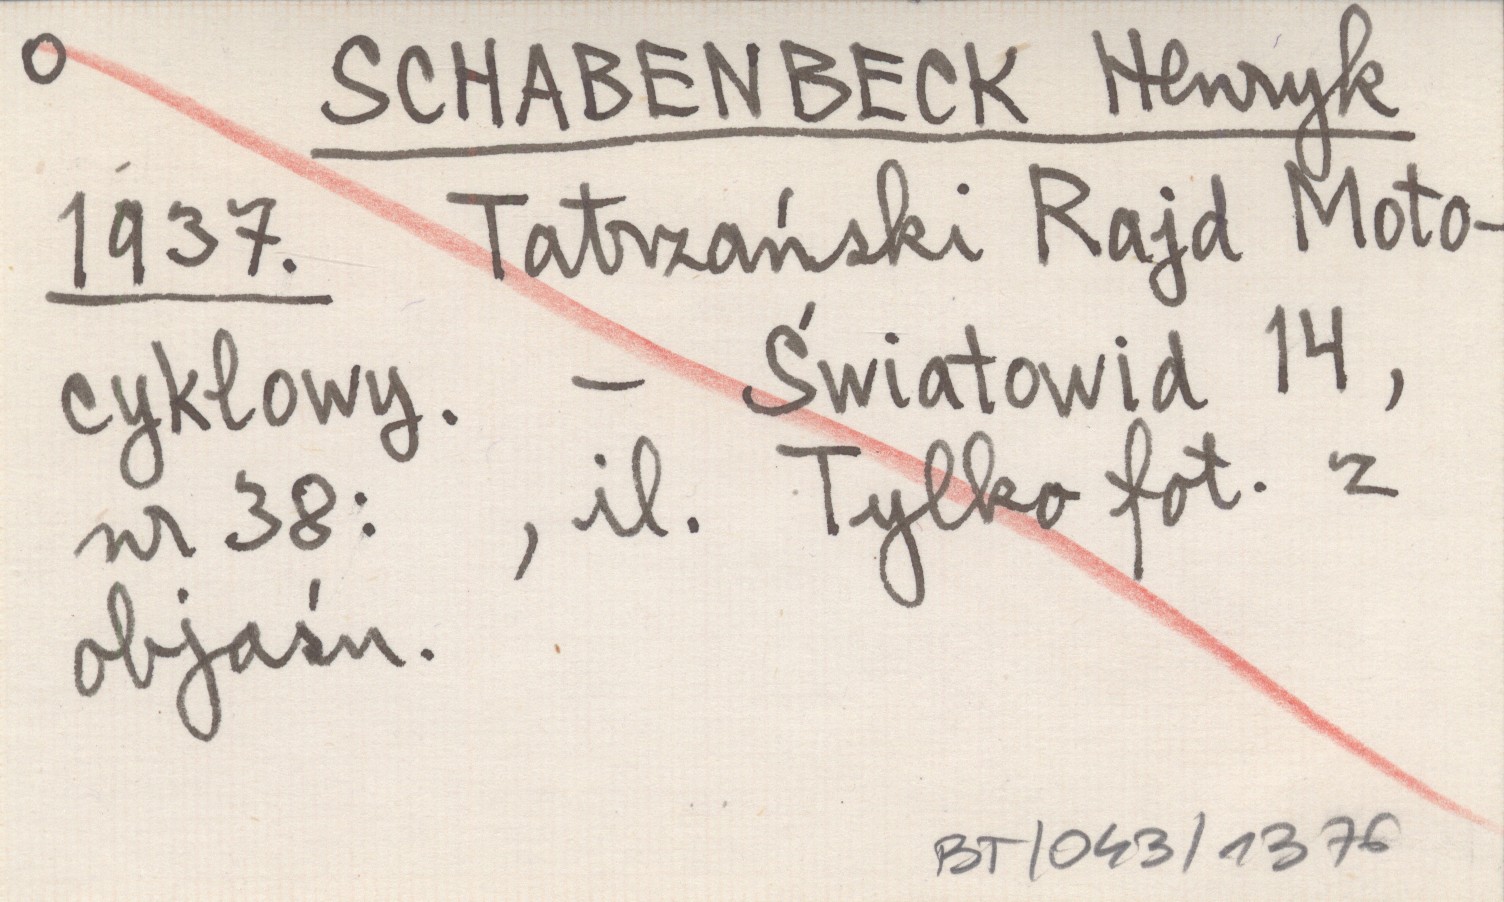 o SCHABENBECK Henryk
1937. Tatrzański Rajd Moto-
cyklowy. – Światowid 14,
nr 38: , il. Tylko fot. z
objaśn.
BT/043/1376